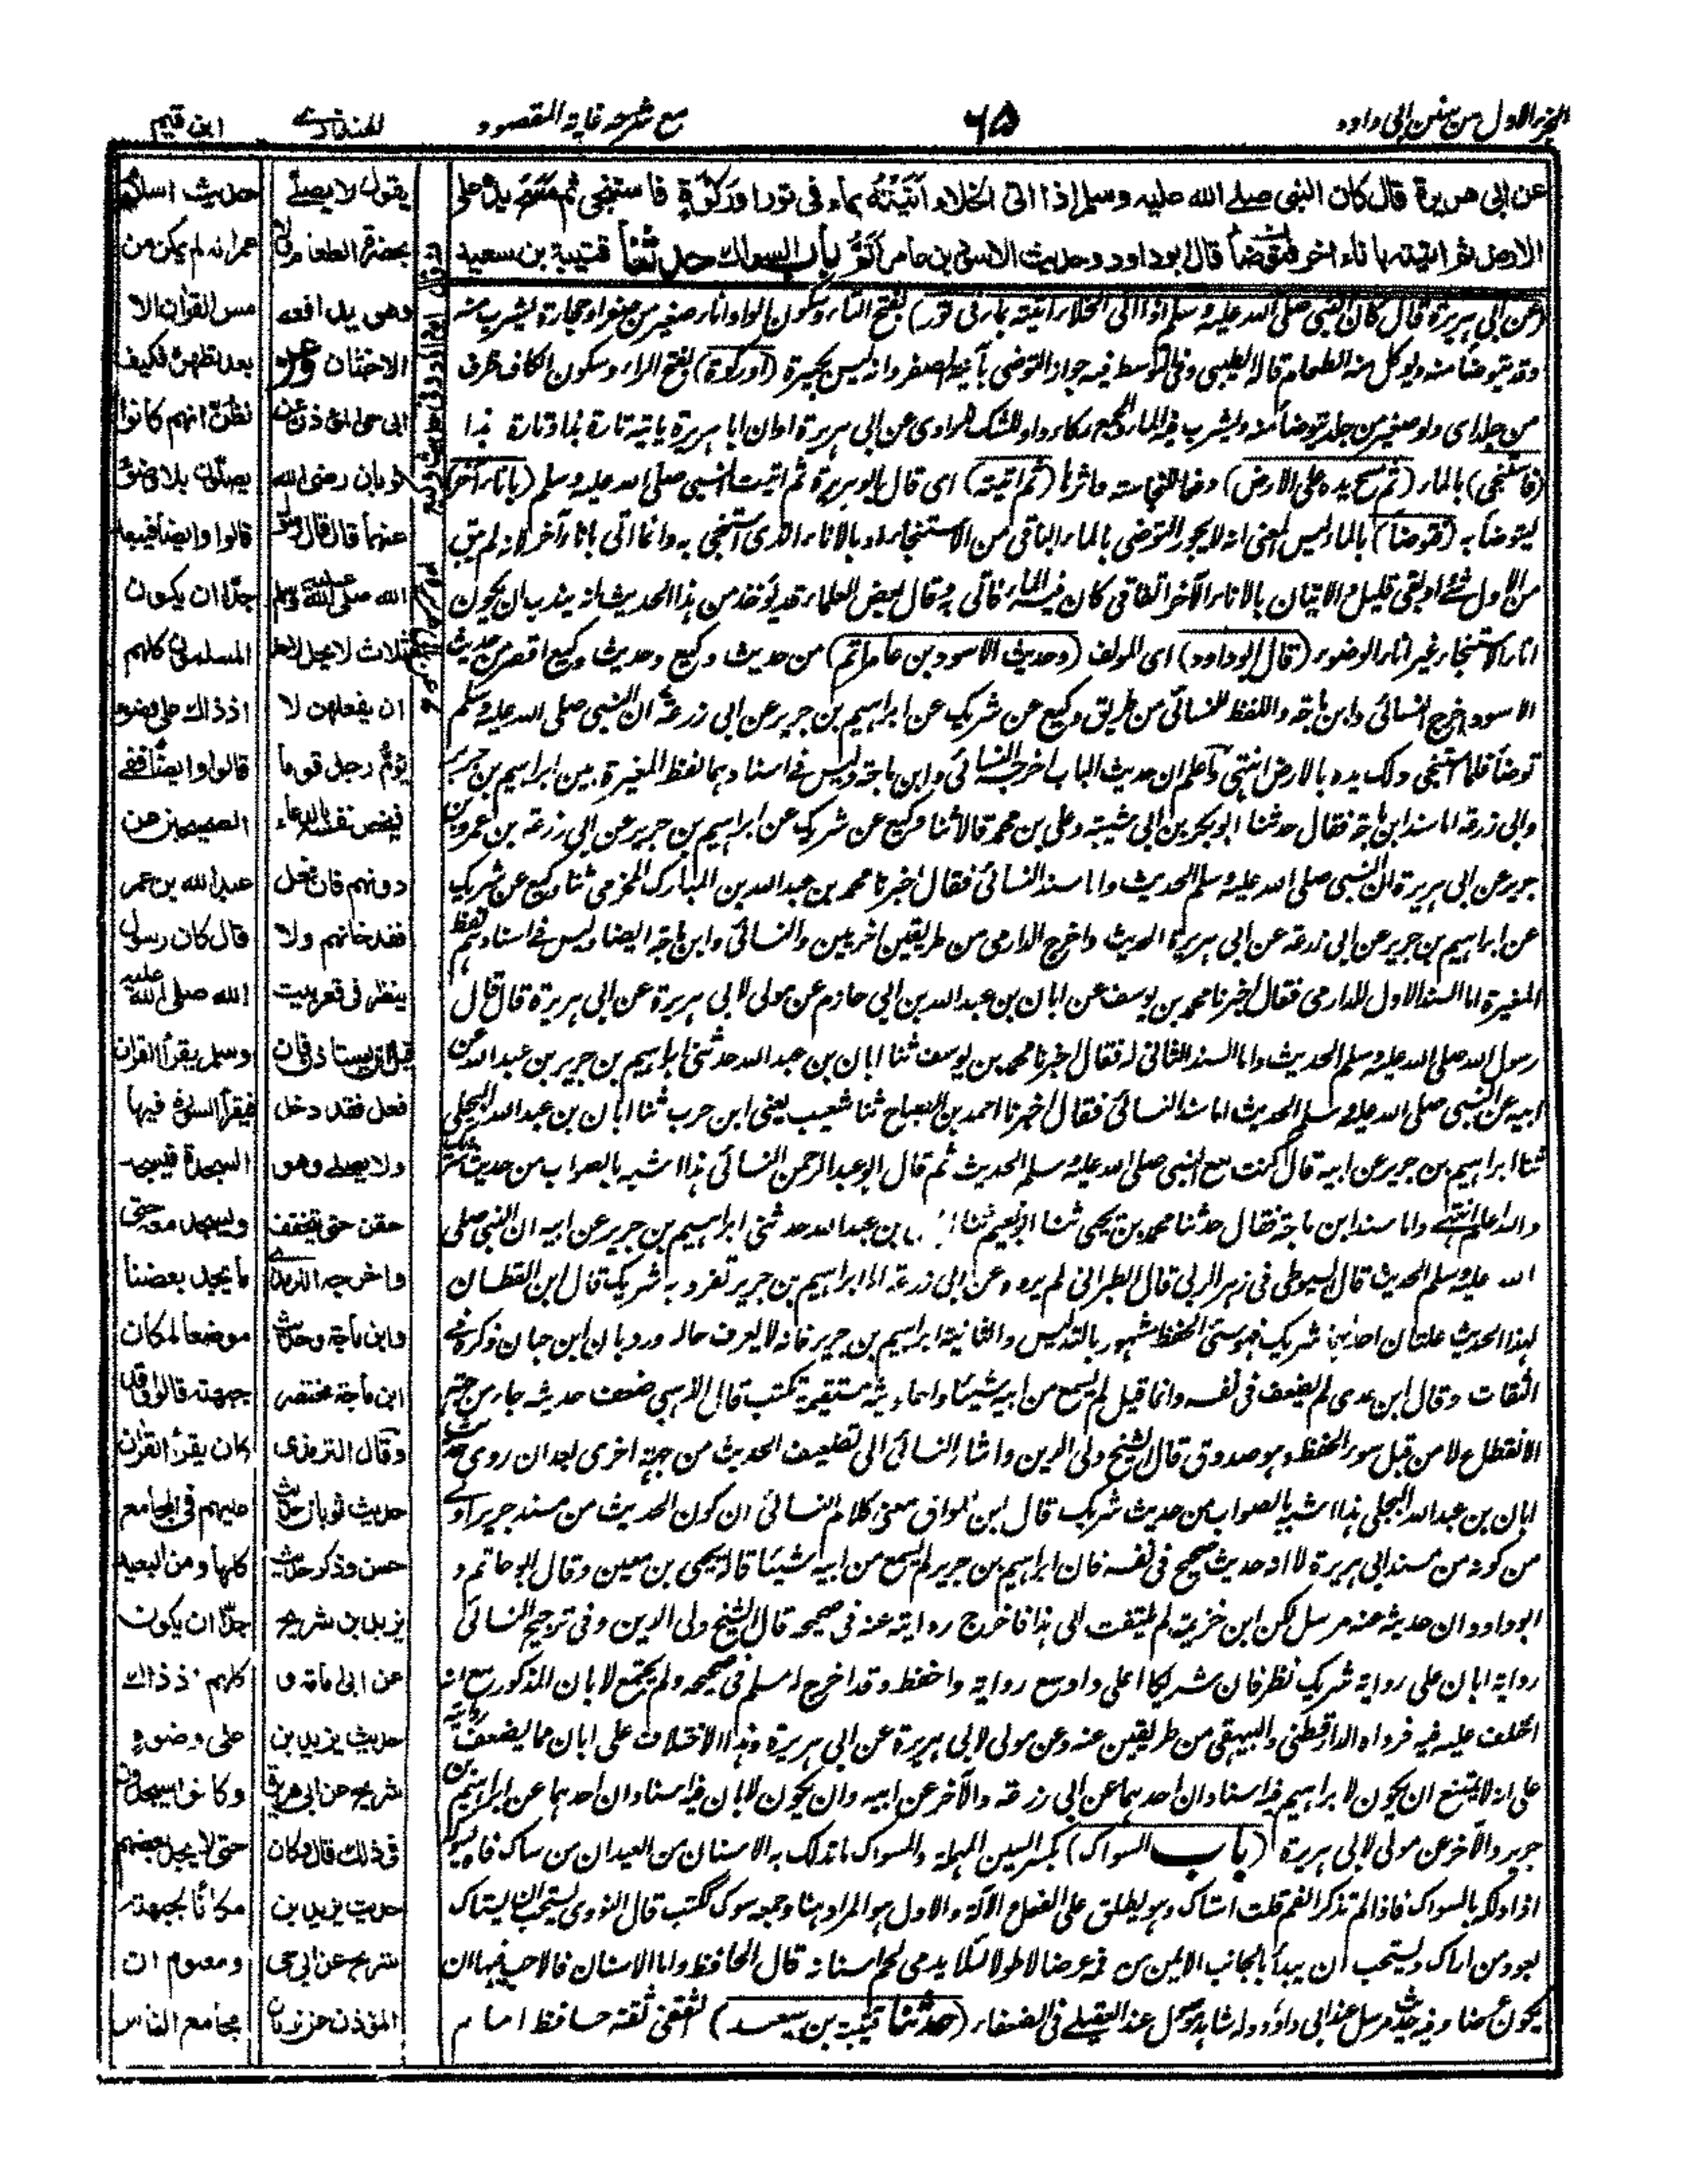 الجزء الاول من سنن ابی داود
۶۵
مع شرحه غایة المقصود
للمنذری
ابن قیم
عن ابی هریرة قال کان النبی صلی الله علیه وسلم اذا اتی الخلاء اتیته بماء فی تور او رکوة فاستنجی ثم مسح یده علی
الارض ثم اتیته باناء اخر فتوضأ قال ابو داود وحدیث الاسود بن عامر اتم باب السواك حدثنا قتیبة بن سعید
(عن ابی هریرة قال کان النبی صلی الله علیه وسلم اذا اتی الخلاء اتیته بماء فی تور) بفتح التاء وسکون الواو اناء صغیر من صفر او حجارة یشرب منه
وقد یتوضأ منه ویوکل منه الطعام قاله الطیبی وفی التوسط فیه جواز التوضی بآنیة الصفر وانه لیس بکبیرة (او رکوة) بفتح الراء وسکون الکاف ظرف
من جلد ای دلو صغیر من جلد یتوضأ منه ویشرب فیه الماء والجمع رکاء واو للشک الراوی عن ابی هریرة او ان ابا هریرة یاتیه تارة بذا وتارة بذا
(فاستنجی) بالماء (ثم مسح یده علی الارض) دفعا للنجاسة واثرها (ثم اتیته) ای قال ابو هریرة ثم اتیت النبی صلی الله علیه وسلم (باناء آخر)
لیتوضأ به (فتوضأ) بالماء لیس المعنی انه لا یجوز التوضی بالماء الباقی من الاستنجاء او بالاناء الذی استنجی به وانما اتی باناء آخر لانه لم یبق
من الاول شئ او بقی قلیل والاتیان بالاناء الآخر اتفاقی کان فیه الماء فاتی به وقال بعض العلماء قد یؤخذ من هذا الحدیث انه یندب ان یکون
اناء الاستنجاء غیر اناء الوضوء (قال ابوداود) ای المولف (وحدیث الاسود بن عامر اتم) من حدیث وکیع وحدیث وکیع اقصر من حدیث
الاسود اخرج النسائی وابن ماجة واللفظ للنسائی من طریق وکیع عن شریک عن ابراهیم بن جریر عن ابی زرعة ان النبی صلی الله علیه وسلم
توضأ فلما استنجی دلک یده بالارض انتهی واعلم ان حدیث الباب اخرجه النسائی وابن ماجة ولیس فی اسنادهما لفظ المغیرة بین ابراهیم بن جریر
وابی زرعة اما سند ابن ماجة فقال حدثنا ابو بکر بن ابی شیبة وعلی بن محمد قالا ثنا وکیع عن شریک عن ابراهیم بن جریر عن ابی زرعة بن عمرو بن
جریر عن ابی هریرة ان النبی صلی الله علیه وسلم الحدیث واما سند النسائی فقال اخبرنا محمد بن عبد الله بن المبارک المخرمی ثنا وکیع عن شریک
عن ابراهیم بن جریر عن ابی زرعة عن ابی هریرة الحدیث واخرج الدارمی من طریقین اخریین والنسائی وابن ماجة ایضا ولیس فی اسنادهم لفظ
المغیرة اما السند الاول للدارمی فقال اخبرنا محمد بن یوسف عن ابان بن عبد الله بن ابی حازم عن مولی لابی هریرة عن ابی هریرة قال قال
رسول الله صلی الله علیه وسلم الحدیث واما السند الثانی له فقال اخبرنا محمد بن یوسف ثنا ابان بن عبد الله حدثنی ابراهیم بن جریر بن عبد الله عن
ابیه عن النبی صلی الله علیه وسلم الحدیث اما سند النسائی فقال اخبرنا احمد بن الصباح ثنا شعیب یعنی ابن حرب ثنا ابان بن عبد الله البجلی
ثنا ابراهیم بن جریر عن ابیه قال کنت مع النبی صلی الله علیه وسلم الحدیث ثم قال ابو عبد الرحمن النسائی هذا اشبه بالصواب من حدیث شریک
والله اعلم انتهی واما سند ابن ماجة فقال حدثنا محمد بن یحیی ثنا ابو نعیم ثنا بن عبد الله حدثنی ابراهیم بن جریر عن ابیه ان النبی صلی
الله علیه وسلم الحدیث قال السیوطی فی زهر الربی قال الطبرانی لم یروه عن ابی زرعة الا ابراهیم بن جریر تفرد به شریک قال ابن القطان
لهذا الحدیث علتان احداهما شریک فهو سیئ الحفظ مشهور بالتدلیس والثانیة ابراهیم بن جریر فانه لا یعرف حاله ورد بان ابن حبان ذکره فی
الثقات وقال ابن عدی لم یضعف فی نفسه وانما قیل لم یسمع من ابیه شیئا واحادیثه مستقیمة تکتب قال الذهبی ضعف حدیثه جاء من جهة
الانقطاع لا من قبل سوء الحفظ وهو صدوق قال الشیخ ولی الدین واشار النسائی الی تضعیف الحدیث من جهة اخری بعد ان روی حدیث
ابان بن عبد الله البجلی هذا اشبه بالصواب من حدیث شریک قال ابن المواق معنی کلام النسائی ان کون الحدیث من مسند جریر اولی
من کونه من مسند ابی هریرة لا انه حدیث صحیح فی نفسه فان ابراهیم بن جریر لم یسمع من ابیه شیئا قاله یحیی بن معین وقال ابو حاتم و
ابو داود ان حدیثه عنه مرسل لکن ابن خزیمة لم یلتفت الی هذا فاخرج روایته عنه فی صحیحه قال الشیخ ولی الدین وفی ترجیح النسائی
روایة ابان علی روایة شریک نظر فان شریکا اعلی واوسع روایة واحفظ وقد اخرج له مسلم فی صحیحه ولم یخرج لابان المذکور مع انه
اختلف علیه فیه فرواه الدارقطنی والبیهقی من طریقین عنه وعن مولی لابی هریرة عن ابی هریرة وهذا الاختلاف علی ابان مما یضعف روایته
علی انه لا یمتنع ان یکون لابراهیم فیه اسنادان احدهما عن ابی زرعة والآخر عن ابیه وان یکون لابان فیه اسنادان احدهما عن ابراهیم بن
جریر والآخر عن مولی لابی هریرة (باب السواک) بکسر السین المهملة والمسواک ما تدلک به الاسنان من العیدان من ساک فاه یسوک
اذا دلکه بالسواک فاذا لم تذکر الفم قلت استاک وهو یطلق علی الفعل والآلة والاول هو المراد هنا وجمعه سوک ککتب قال النووی یستحب ان یستاک
بعود من اراک ویستحب ان یبدأ بالجانب الایمن من فمه عرضا لا طولا لئلا یدمی لحم اسنانه قال الحافظ واما الاسنان فالاحب فیها ان
یکون عرضا وفیه حدیث مرسل عند ابی داود وله شاهد موصول عند العقیلی فی الضعفاء (حدثنا قتیبة بن سعید) الثقفی ثقة حافظ امام
یقول لا یصلی
بحضرة الطعام
وهو یدافعه
الاخبثان
ابی حی المؤذن عن
ثوبان رضی الله
عنهما قال قال رسول
الله صلی الله علیه وسلم
ثلاث لا یحل لاحد
ان یفعلهن لا
یؤم رجل قوما
فیخص نفسه بالدعاء
دونهم فان فعل
فقد خانهم ولا
ینظر فی قعر بیت
قبل ان یستاذن فان
فعل فقد دخل
ولا یصلی وهو
حقن حتی یتخفف
واخرجه الترمذی
وابن ماجة وحدیث
ابن ماجة مختصر
وقال الترمذی
حدیث ثوبان حدیث
حسن وذکر حدیث
یزید بن شریح
عن ابی مامة و
حدیث یزید بن
شریح عن ابی هریرة
فی ذلك قال وکان
حدیث یزید بن
شریح عن ابی حی
المؤذن عن ثوبان
حدیث اسلم
عمر انه لم یکن من
مس القران الا
بعد تطهر فکیف
نظن انهم کانوا
یصلون بلا وضوء
قالوا وایضا فیبعد
جدا ان یکون
المسلمون کلهم
اذ ذاك علی وضوء
قالوا وایضا ففی
الصحیحین عن
عبد الله بن عمر
قال کان رسول
الله صلی الله علیه
وسلم یقرأ القران
فیقرأ السورة فیها
السجدة فیسجد
ویسجد معه حتی
ما یجد بعضنا
موضعا لمکان
جبهته قالوا وقد
کان یقرأ القران
علیهم فی المجامع
کلها ومن البعید
جدا ان یکون
کلهم اذ ذاك
علی وضوء
وکانوا یسجدون
حتی لا یجد بعضهم
مکانا لجبهته
ومعلوم ان
مجامع الناس